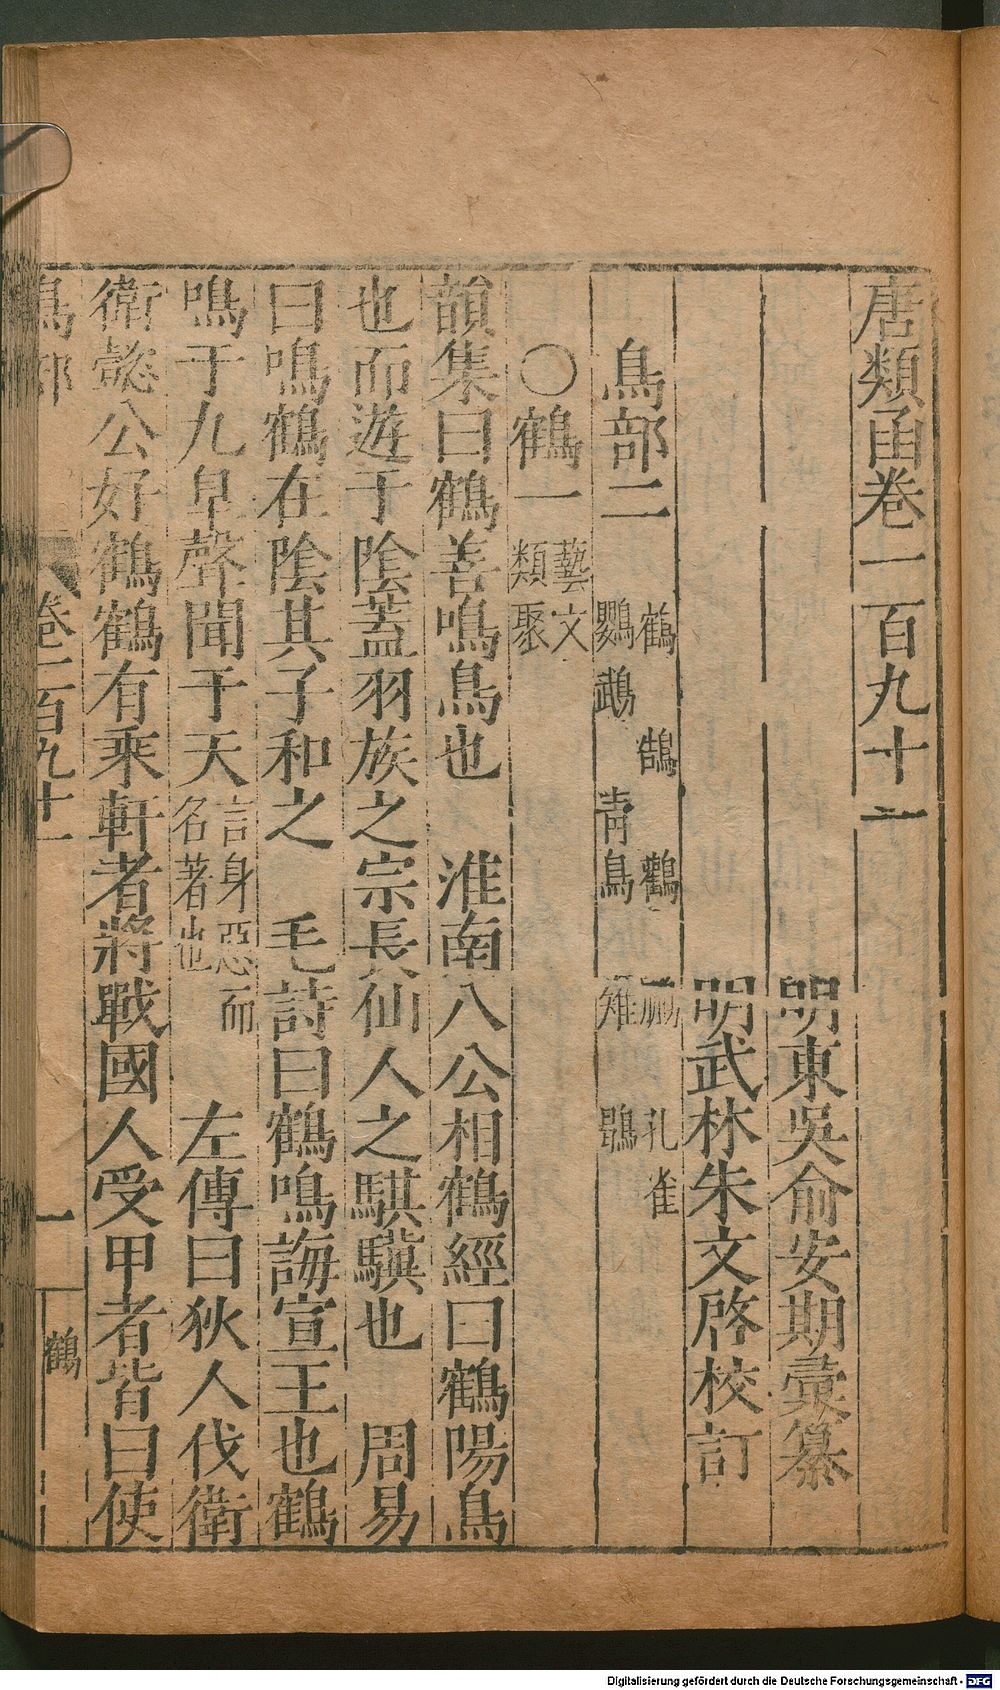 唐類函卷一百九十二
明東吳俞安期彙纂
明武林朱文啓校訂
鳥部二 鶴 鵠 鸛 孔雀
鸚鵡 青鳥 雉 鶚
〇鶴一 藝文
類聚
韻集曰鶴善鳴鳥也 淮南八公相鶴經曰鶴陽鳥
也而遊于陰蓋羽族之宗長仙人之騏驥也 周易
曰鳴鶴在陰其子和之 毛詩曰鶴鳴誨宣王也鶴
鳴于九皐聲聞于天 言身惡而
名著也 左傳曰狄人伐衛
衛懿公好鶴鶴有乘軒者將戰國人受甲者皆曰使
鳥部 卷一百九十二 一 鶴
Digitalisierung gefördert durch die Deutsche Forschungsgemeinschaft - DFG